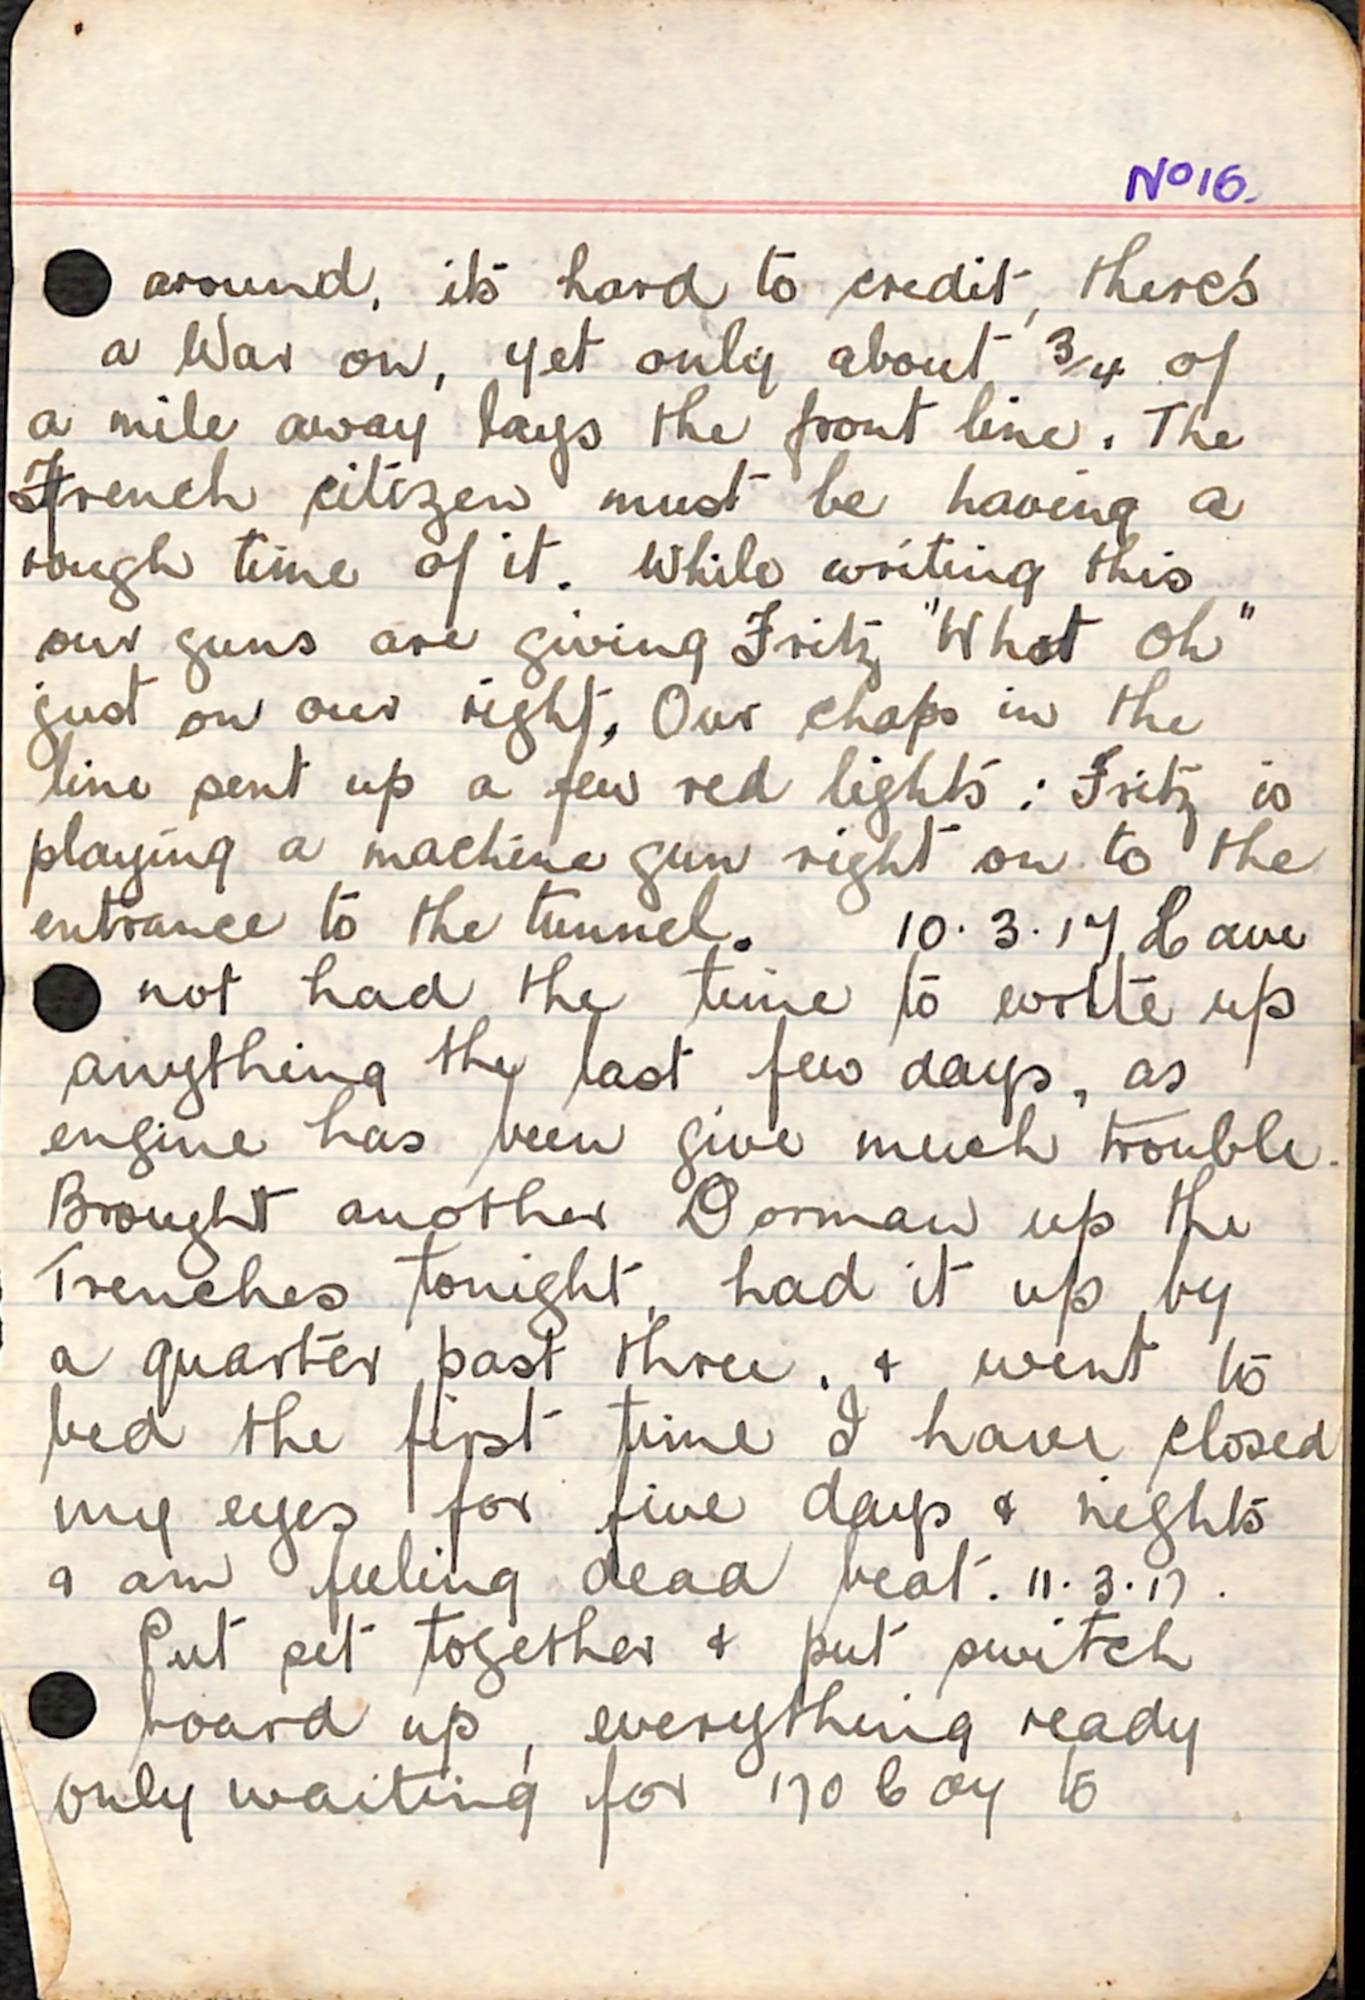 No 16.
around, its hard to credit, there's
a War on, yet only about 3/4 of
a mile away lays the front line. The
French citizen must be having a
rough time of it. While writing this
our guns are giving Fritz "What Oh"
just on our right. Our chaps in the
line sent up a few red lights: Fritz is
playing a machine gun right on to the
entrance to the tunnel. 10.3.17 Have
not had the time to write up
anything the last few days, as
engine has been give much trouble.
Brought another Dorman up the
Trenches tonight, had it up by
a quarter past three, & went to
bed the first time I have closed
my eyes for five days & nights
& am feeling dead beat. 11.3.17.
Put set together & put switch
board up, everything ready
only waiting for 170 Coy to